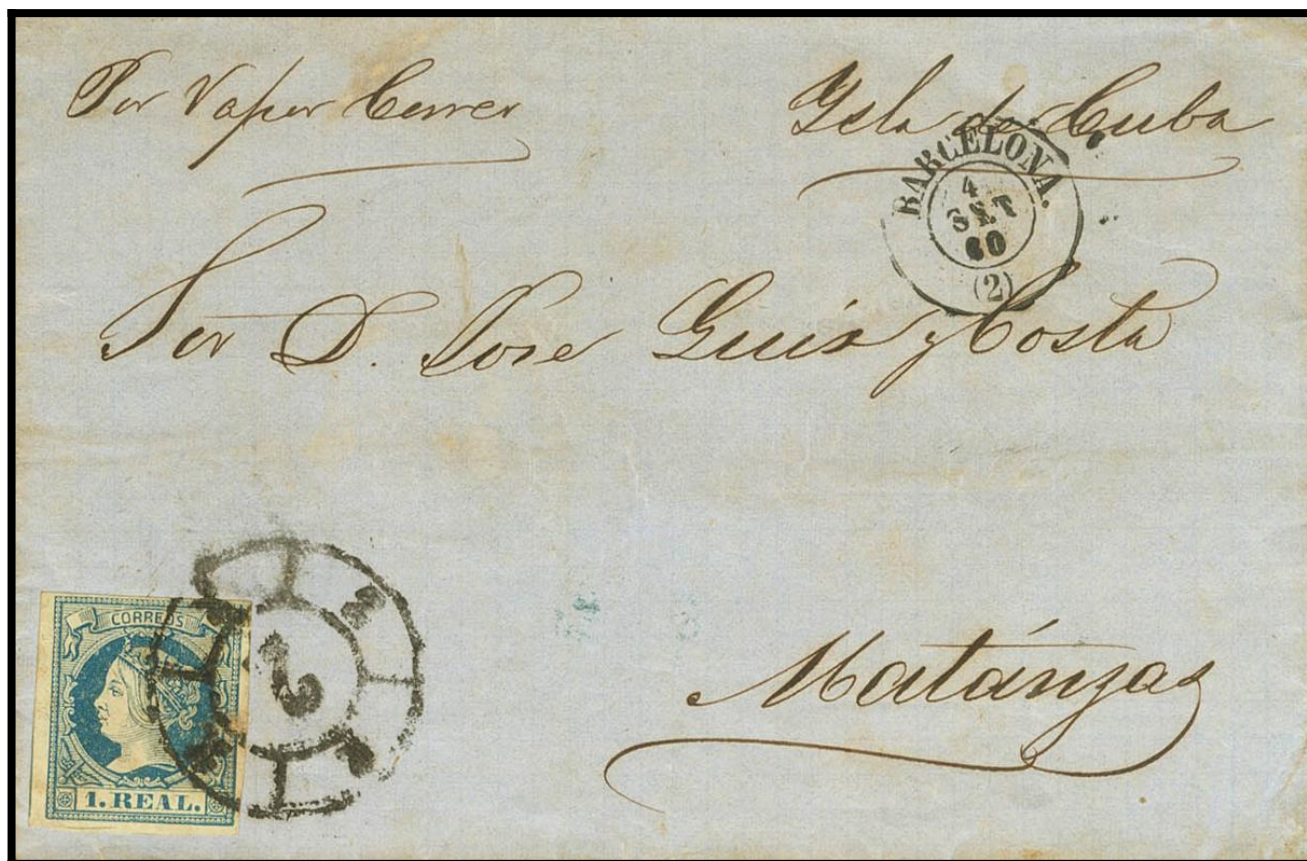 Por Vapor Correo
Ysla de Cuba
BARCELONA.
4
SET
60
(2)
Sor D. José Guis y Costa
2
Matánzas
CORREOS
1. REAL.